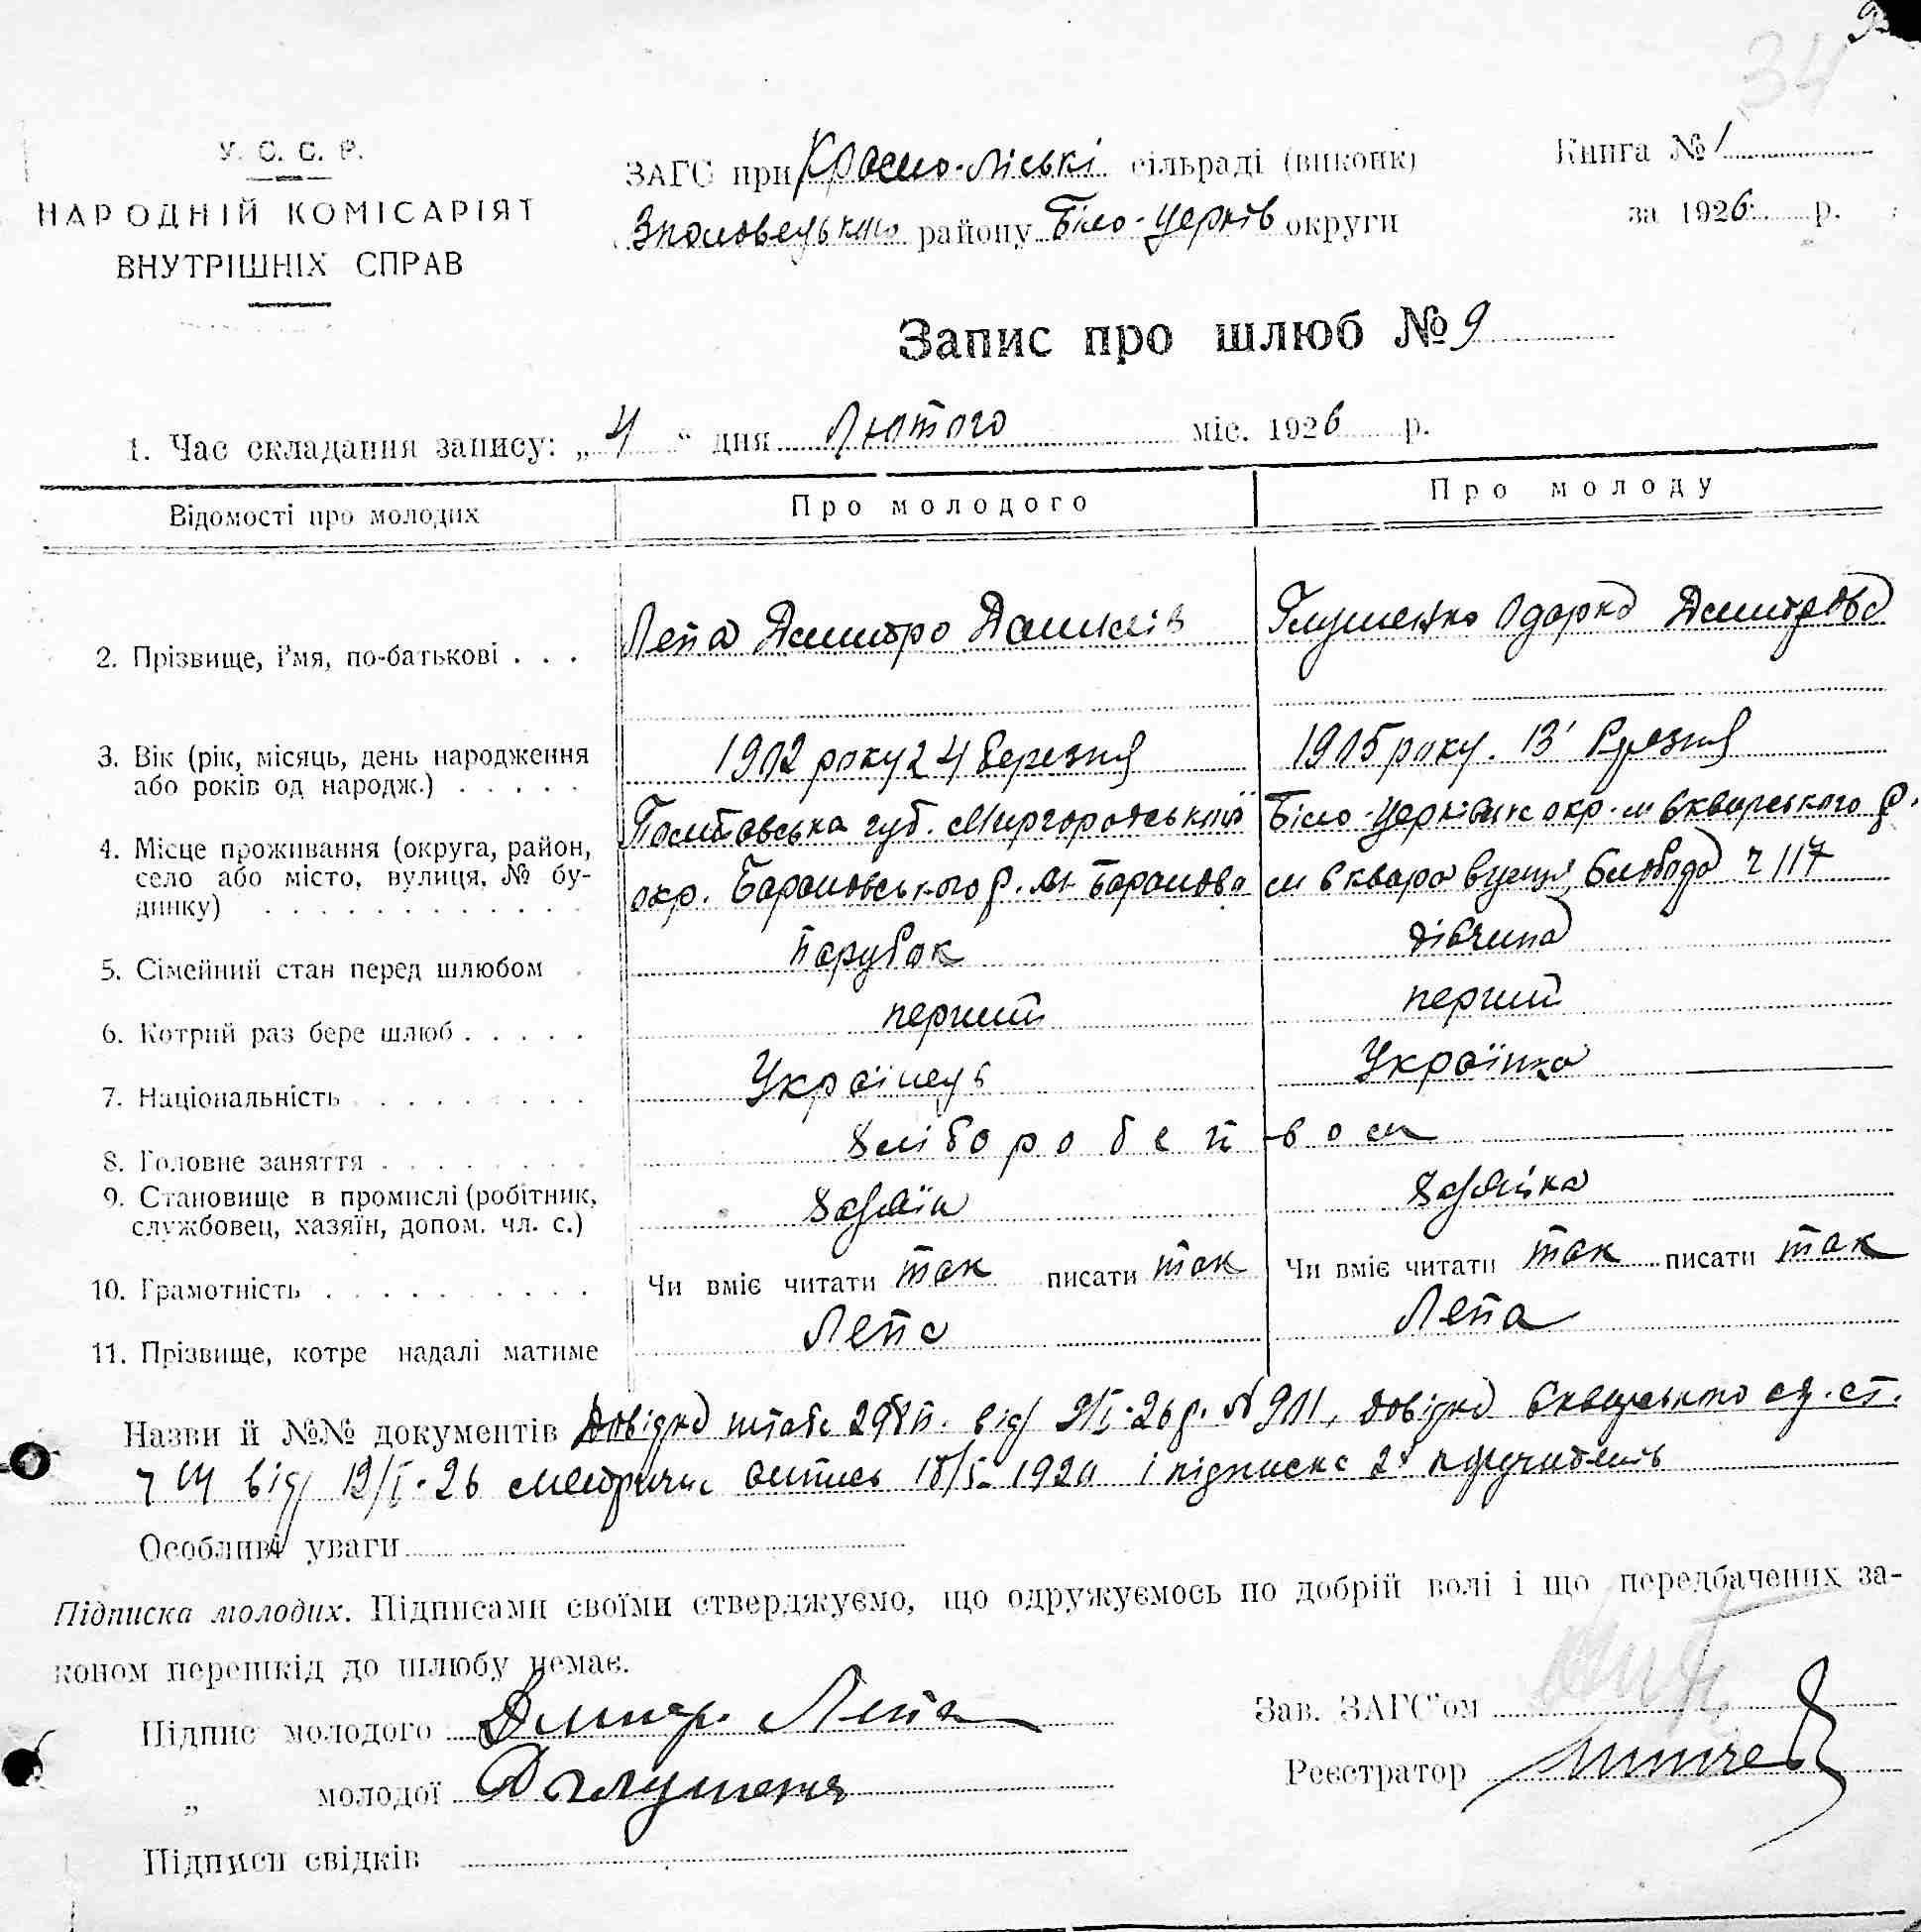 34
У. С. С. Р.
НАРОДНІЙ КОМІСАРІЯТ
ВНУТРІШНІХ СПРАВ
ЗАГС при Красно-ліські сільраді (виконк)
району Біло-Церків округи
Книга № 1
за 1926 р.
Запис про шлюб № 9
1. Час складання запису: „4“ дня Лютого міс. 1926 р.
Відомості про молодих
Про молодого
Про молоду
2. Прізвище, і'мя, по-батькові . . .
Лепа Дмитро Данилів
Глущенко Одарка Дмитрова
3. Вік (рік, місяць, день народження
або років од народж.) . . . . .
1902 року 24 березня
1905 року. 13 березня
4. Місце проживання (округа, район,
село або місто, вулиця, № бу-
динку) . . . . . . . . . . . .
Полтавська губ. Миргородський
окр. Барановського р. м. Баранова
Біло-Церківськ окр. м Сквирського р.
м Сквира вулиця Слобода ч 117
5. Сімейний стан перед шлюбом .
парубок
дівчина
6. Котрий раз бере шлюб . . . . .
перший
перший
7. Національність . . . . . . . . .
Українець
Українка
8. Головне заняття . . . . . . . .
хліборобством
9. Становище в промислі (робітник,
службовец, хазяїн, допом. чл. с.)
хазяїн
хазяйка
10. Грамотність . . . . . . . . . .
Чи вміє читати так писати так
Чи вміє читати так писати так
11. Прізвище, котре надалі матиме
Лепа
Лепа
Назви й №№ документів Довідка від довідка Сквирського
від 12/I-26 і підписка
Особливі уваги
Підписка молодих. Підписами своїми стверджуємо, що одружуємось по добрій волі і що передбачених за-
коном перешкід до шлюбу немає.
Підпис молодого Дмитр. Лепа
„ молодої
Підписи свідків
Зав. ЗАГС'ом
Реєстратор